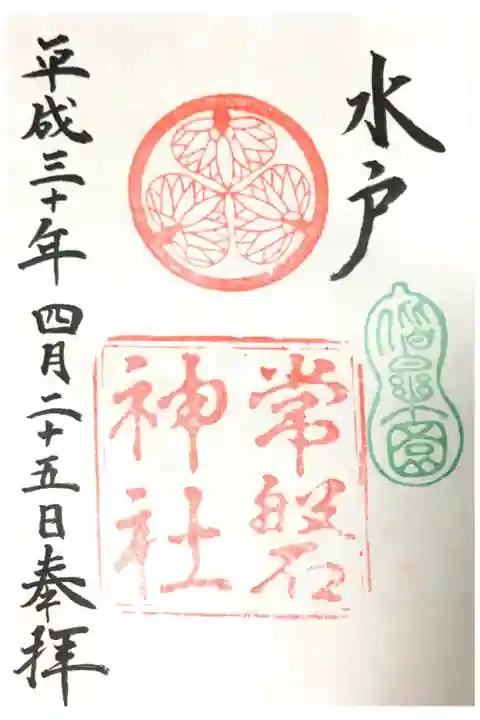 水戸
偕楽園
常磐
神社
平成三十年四月二十五日奉拝